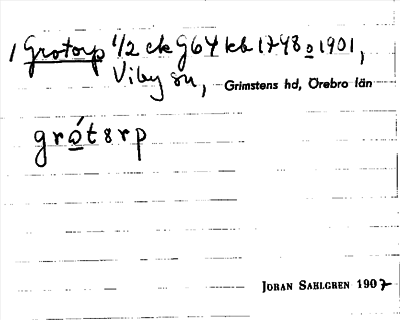 1 Grotorp 1/2 ck G64 kb 1748 o 1901,
Viby sn, Grimstens hd, Örebro län
grótsrp
JOHAN SAHLGREN 1907